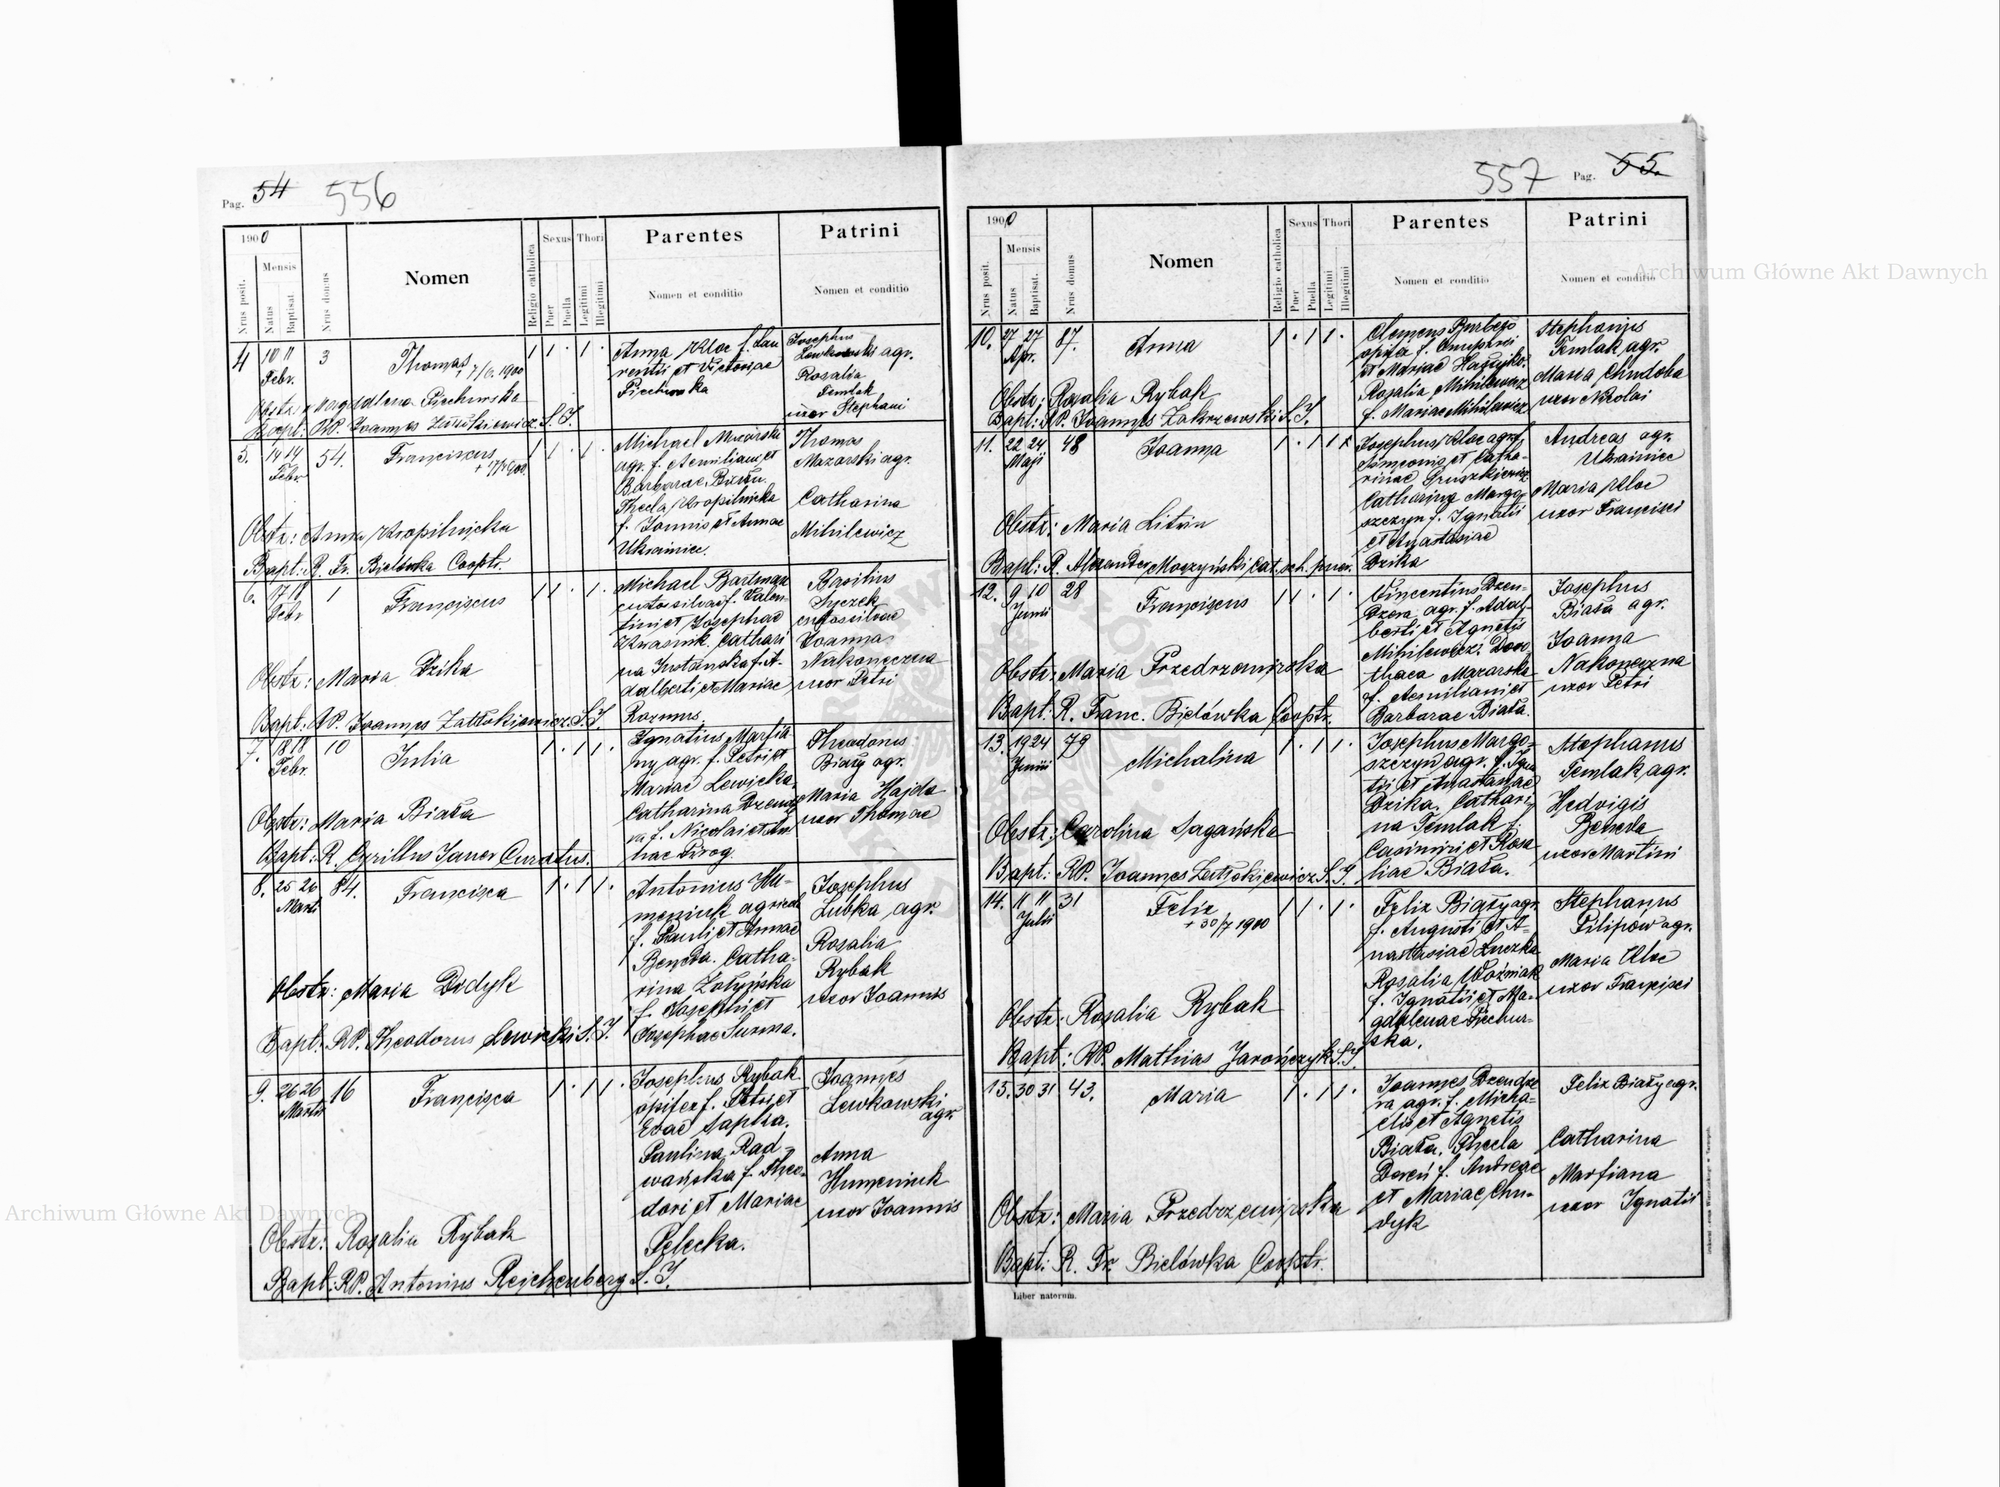 Pag. 54 556
1900
Nrus posit.
Mensis
Natus
Baptisat.
Nrus domus
Nomen
Religio catholica
Sexus
Puer
Puella
Thori
Legitimi
Illegitimi
Parentes
Nomen et conditio
Patrini
Nomen et conditio
4 10 11 3 Thomas 1 1 . 1 .
Febr. + 7/6. 1900
Anna Kloc f. Lau
rentii et Victoriae
Piechurska
Josephus
Lewkowski agr.
Rosalia
Temlak
uxor Stephani
Obstr: Magdalena Piechurska
Bapt: RP. Joannes S. J.
5. 14 14 54. Franciscus 1 1 . 1 .
Febr
Michael Mazarski
agr. f. Aemiliani et
Barbarae Biała.
Thecla Kropilnicka
f. Joannis et Annae
Ukrainiec.
Thomas
Mazarski agr.
Catharina
Mihilewicz
Obstr: Anna Kropilnicka
Bapt: R. Fr. Bielówka Cooptr.
6. 17 18 1 Franciscus 1 1 . 1 .
Febr
Michael Bartman
custos silvae f. Valen-
tini et Josephae
Kwasnik. Cathari
na f. A-
dalberti et Mariae
Rozmus.
Basilius
Syczek
custos silvae
Joanna
Nakoneczna
uxor Petri
Obstr: Maria Dzika
Bapt: RP. Joannes S. J.
7. 18 18 10 Julia 1 . 1 1 .
Febr.
Ignatius Marfia
ny agr. f. Petri et
Mariae Lewicka
Catharina Dzendz
ra f. Nicolai et An
nae Pirog.
Theodorus
Biały agr.
Maria Hajda
uxor Thomae
Obstr: Maria Biała
Bapt: R. Cyrillus Janer Curatus.
8. 25 26 84. Francisca 1 . 1 1 .
Marti
Antonius Hu-
meniuk agricola
f. Pauli et Annae
Beneda. Catha-
rina Zołyńska
f. Josephi et
Josephae Surma.
Josephus
Lubka agr.
Rosalia
Rybak
uxor Joannis
Obstr: Maria Didyk
Bapt: RP. Theodorus Lewicki S. J.
9. 26 26 16 Francisca 1 . 1 1 .
Martii
Josephus Rybak
opifex f. Petri et
Evae Sapka.
Paulina Rad-
wańska f. Theo-
dori et Mariae
Pelecka.
Joannes
Lewkowski
agr.
Anna
Humeniuk
uxor Joannis
Obstr: Rosalia Rybak
Bapt: RP. Antonius Reichenberg S. J.
557 Pag. 55.
1900
Nrus posit.
Mensis
Natus
Baptisat.
Nrus domus
Nomen
Religio catholica
Sexus
Puer
Puella
Thori
Legitimi
Illegitimi
Parentes
Nomen et conditio
Patrini
Nomen et conditio
10. 27 27 87. Anna 1 . 1 1 .
Apr.
Clemens Burbejo
opifex f. Onuphrii
et Mariae
Rosalia Mihilewicz
f. Mariae Mihilewicz
Stephanus
Temlak agr.
Maria Chudoba
uxor Nicolai
Obstr: Rosalia Rybak
Bapt: RP. Joannes Zakrzewski S. J.
11. 22 24 48 Joanna 1 . 1 1
Maji
Josephus Kloc agr. f.
Simeonis et Catha-
rinae
Catharina Margo-
szczyn f. Ignatii
et Anastasiae
Dzika
Andreas agr.
Ukrainiec
Maria Kloc
uxor Francisci
Obstr: Maria Litwin
Bapt: R. Alexander Moczyński, cat. sch. puer.
12. 9 10 28 Franciscus 1 1 . 1 .
Junii
Vincentius Dzen-
dzora agr. f. Adal-
berti et Agnetis
Mihilewicz. Doro
thaea Mazarska
f. Aemiliani et
Barbarae Biała.
Josephus
Biała agr.
Joanna
Nakoneczna
uxor Petri
Obstr: Maria Przedrzemirska
Bapt: R. Franc. Bielówka Cooptr.
13. 19 24 79 Michalina 1 . 1 1 .
Junii
Josephus Margo-
szczyn agr. f. Igna
tii et Anastasiae
Dzika. Cathari
na Temlak f.
Casimiri et Rosa
liae Biała.
Stephanus
Temlak agr.
Hedvigis
Beneda
uxor Martini
Obstr: Carolina Sagańska
Bapt: RP. Joannes S. J.
14. 11 11 31 Felix 1 1 . 1 .
Julii + 30/7 1900
Felix Biały agr.
f. Augusti et A-
nastasiae Łuczka
Rosalia Woźniak
f. Ignatii et Ma-
gdalenae Piechur-
ska.
Stephanus
Pilipów agr.
Maria Kloc
uxor Francisci
Obstr: Rosalia Rybak
Bapt: RP. Mathias Jarończyk S. J.
15. 30 31 43. Maria 1 . 1 1 .
Joannes Dzendzo
ra agr. f. Micha-
elis et Agnetis
Biała. Thecla
Dereń f. Andreae
et Mariae Chu-
dyk
Felix Biały agr.
Catharina
Marfiana
uxor Ignatii
Obstr: Maria Przedrzemirska
Bapt: R. Fr. Bielówka Cooptr.
Liber natorum.
Archiwum Główne Akt Dawnych
Archiwum Główne Akt Dawnych